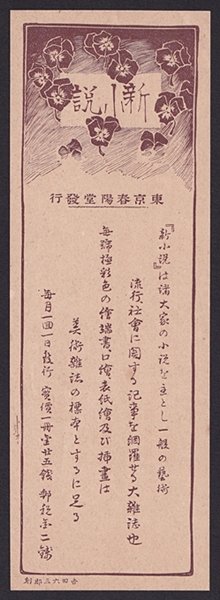 新小説
東京春陽堂發行
『新小説』は諸大家の小説を主とし一般の藝術
流行、社會に関する記事を網羅せる大雜誌也
毎號極彩色の繪端書口繪表紙繪及び挿畫は
美術雜誌の標本とするに足る
毎月一回一日發行 實價一冊金廿五錢 郵税金二錢